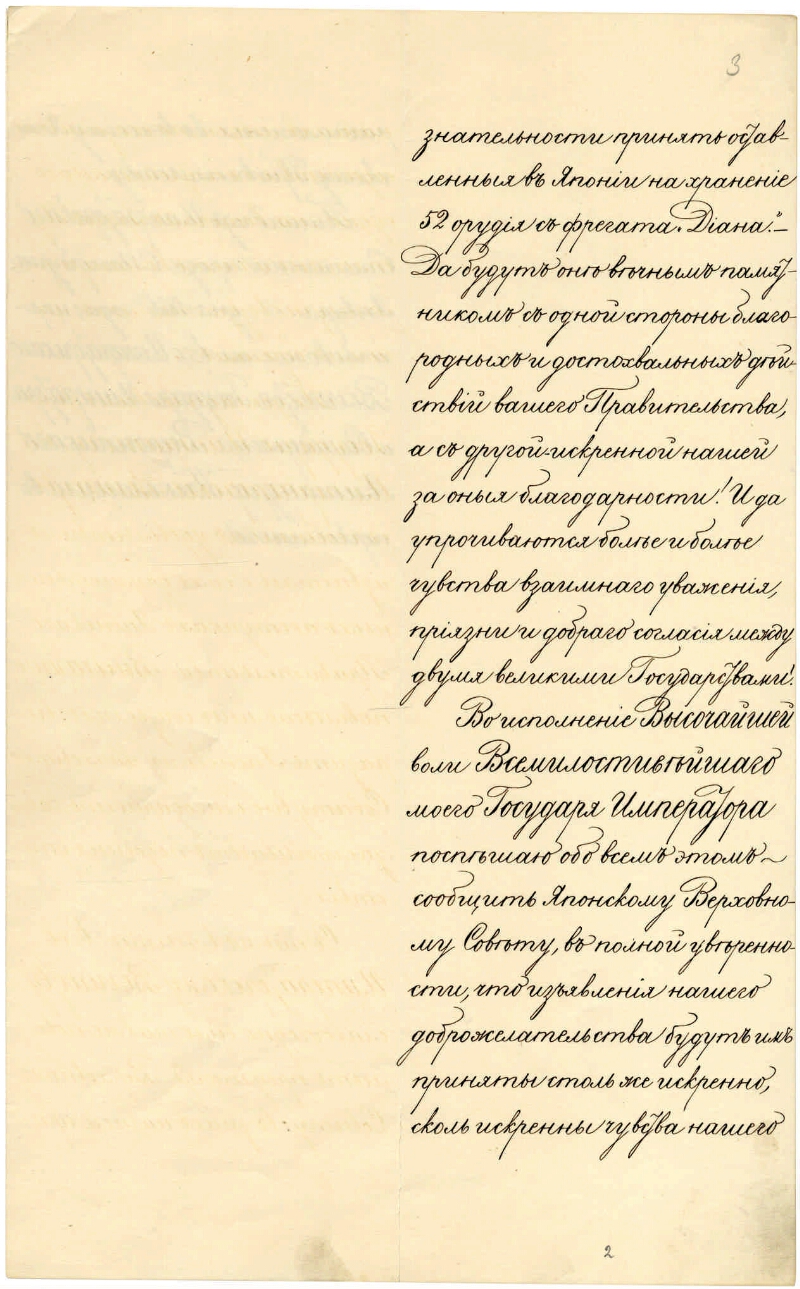 3
знательности принять остав-
ленныя въ Японіи на храненіе
52 орудія съ фрегата „Діана.“—
Да будутъ онѣ вѣчнымъ памят-
никомъ съ одной стороны благо-
родныхъ и достохвальныхъ дѣй-
ствій вашего Правительства,
а съ другой-искренной нашей
за оныя благодарности! И да
упрочиваются болѣе и болѣе
чувства взаимнаго уваженія,
пріязни и добраго согласія между
двумя великими Государствами!
Во исполненіе Высочайшей
воли Всемилостивѣйшаго
моего Государя Императора
поспѣшаю обо всемъ этомъ ~
сообщить Японскому Верховно-
му Совѣту, въ полной увѣренно-
сти, что изъявленія нашего
доброжелательства будутъ имъ
приняты столь же искренно,
сколь искренны чувства нашего
2